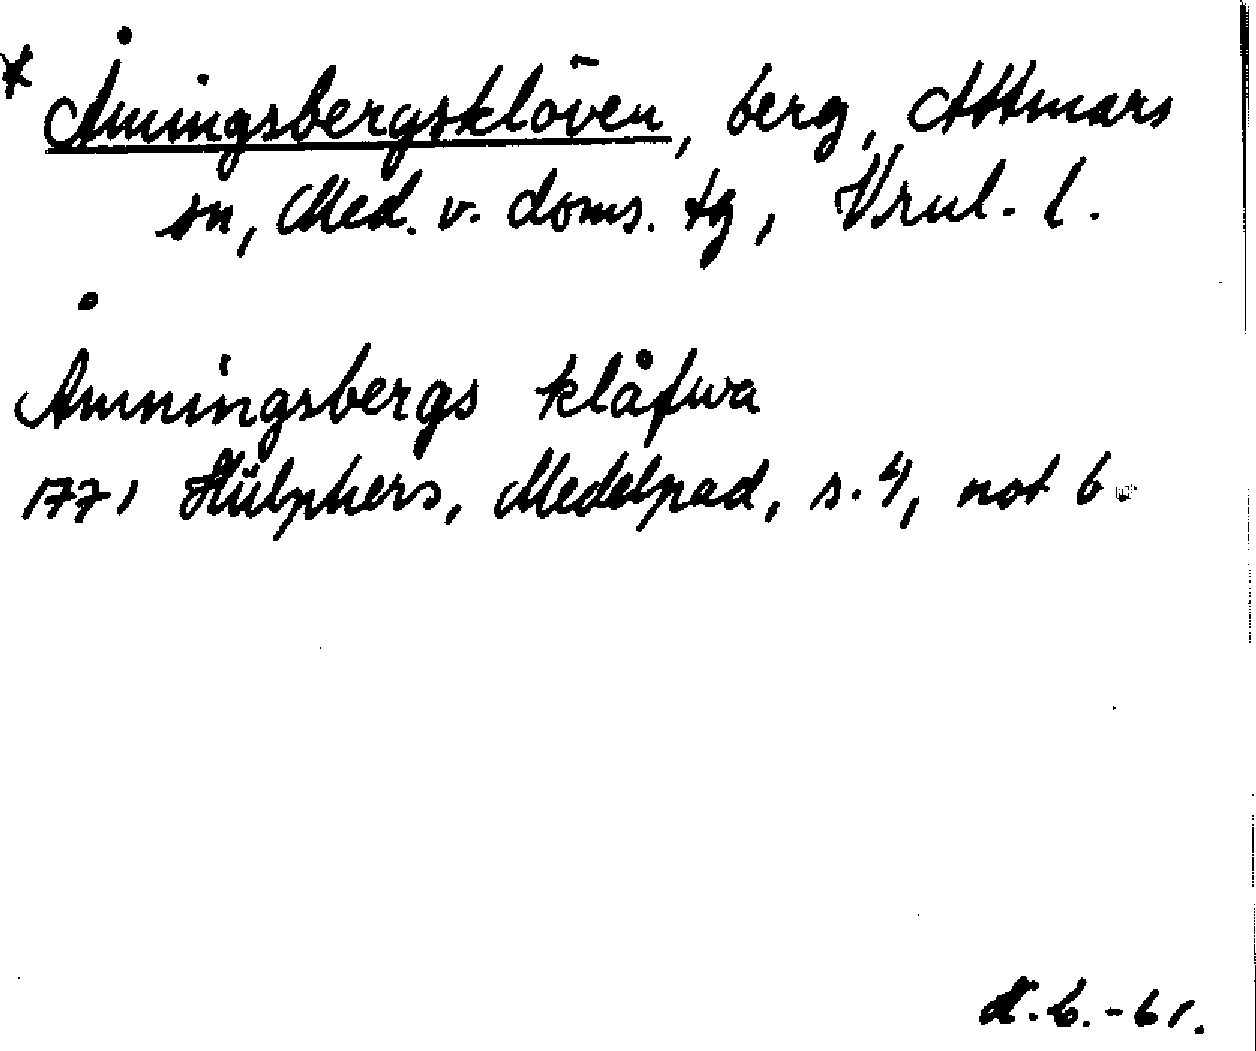 * Åmningsbergsklöven, berg, Attmars
sn, Med. v. doms. tg, Vrnl. l.
Åmningsbergs klåfwa
1771 Hülphers, Medelpad, s. 4, not b.
-61.